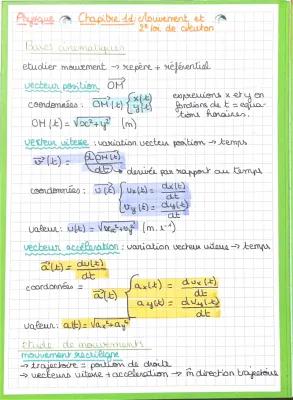 Physique Chapitre 11 Mouvement et
2e loi de Newton
Bases cinématiques
étudier mouvement → repère + référentiel
vecteur position OM
coordonnées : OM(t) { x(t)
y(t)
expressions x et y en
fonctions de t = équa-
tions horaires.
OM(t) = √x²+y² (m)
vecteur vitesse : variation vecteur position → temps
v(t) = dOM(t)/dt → dérivée par rapport au temps
coordonnées : v(t) { vx(t) = dx(t)/dt
vy(t) = dy(t)/dt
valeur : v(t) = √vx²+vy² (m.s⁻¹)
vecteur accélération : variation vecteur vitesse → temps
a(t) = dv(t)/dt
coordonnées = a(t) { ax(t) = dvx(t)/dt
ay(t) = dvy(t)/dt
valeur : a(t) = √ax²+ay²
étude de mouvements
mouvement rectiligne
→ trajectoire = portion de droite
→ vecteurs vitesse + accélération → m̂ direction trajectoire